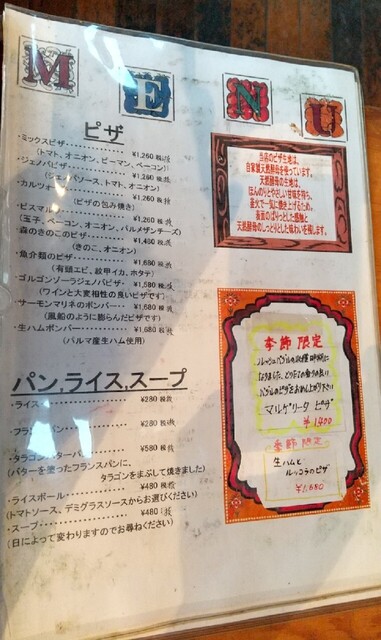 MENU
ピザ
・ミックスピザ・・・・・・・・・・・・¥1,260 税抜
(トマト、オニオン、ピーマン、ベーコン)
・ジェノバピザ・・・・・・・・・・・・¥1,260 税抜
(ジェノバソース、トマト、オニオン)
・カルツォーネ・・・・・・・・・・・・¥1,260 税抜
(ピザの包み焼き)
・ビスマルク・・・・・・・・・・・・¥1,260 税抜
(玉子、ベーコン、オニオン、パルメザンチーズ)
・森のきのこのピザ・・・・・・・・¥1,480 税抜
(きのこ、オニオン)
・魚介類のピザ・・・・・・・・・・¥1,680 税抜
(有頭エビ、紋甲イカ、ホタテ)
・ゴルゴンゾーラジェノバピザ・・・¥1,580 税抜
(ワインと大変相性の良いピザです)
・サーモンマリネのボンバー・・・・¥1,680 税抜
(風船のように膨らんだピザです)
・生ハムボンバー・・・・・・・・・・¥1,680 税抜
(パルマ産生ハム使用)
パン,ライス,スープ
・ライス・・・・・・・・・・・・¥280 税抜
・フランスパン・・・・・・・・・・¥280 税抜
・タラゴンバターパン・・・・・・¥580 税抜
(バターを塗ったフランスパンに、
タラゴンをまぶして焼きました)
・ライスボール・・・・・・・・・・¥480 税抜
(トマトソース、デミグラスソースからお選びください)
・スープ・・・・・・・・・・・・¥480 税抜
(日によって変わりますのでお尋ねください)
当店のピザ生地は、
自家製天然酵母を使っています。
天然酵母の生地は、
ほんのりとやさしい甘味を持ち、
釜火で一気に焼き上げるため、
表面のぱりっとした感触と
天然酵母のしっとりとした味わいを残します。
季節 限定
バジルのピザをお召し上がり下さい
マルゲリータ ピザ
¥1,400
季節 限定
生ハムと
ルッコラのピザ
¥1,680